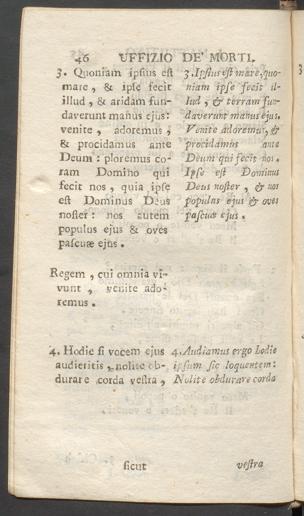 46 UFFIZIO DE' MORTI.
3. Quoniam ipsius est
mare, & ipse fecit
illud, & aridam fun-
daverunt manus ejus:
venite, adoremus,
& procidamus ante
Deum: ploremus co-
ram Domino qui
fecit nos, quia ipse
est Dominus Deus
noster: nos autem
populus ejus & oves
pascuæ ejus.
Regem, cui omnia vi-
vunt, venite ado-
remus.
4. Hodie si vocem ejus
audieritis, nolite ob-
durare corda vestra,
sicut
3. Ipsius est mare, quo-
niam ipse fecit il-
lud, & terram fun-
daverunt manus ejus.
Venite adoremus, &
procidamus ante
Deum qui fecit nos.
Ipse est Dominus
Deus noster, & nos
populus ejus & oves
pascuæ ejus.
4. Audiamus ergo hodie
ipsum sic loquentem:
Nolite obdurare corda
vestra